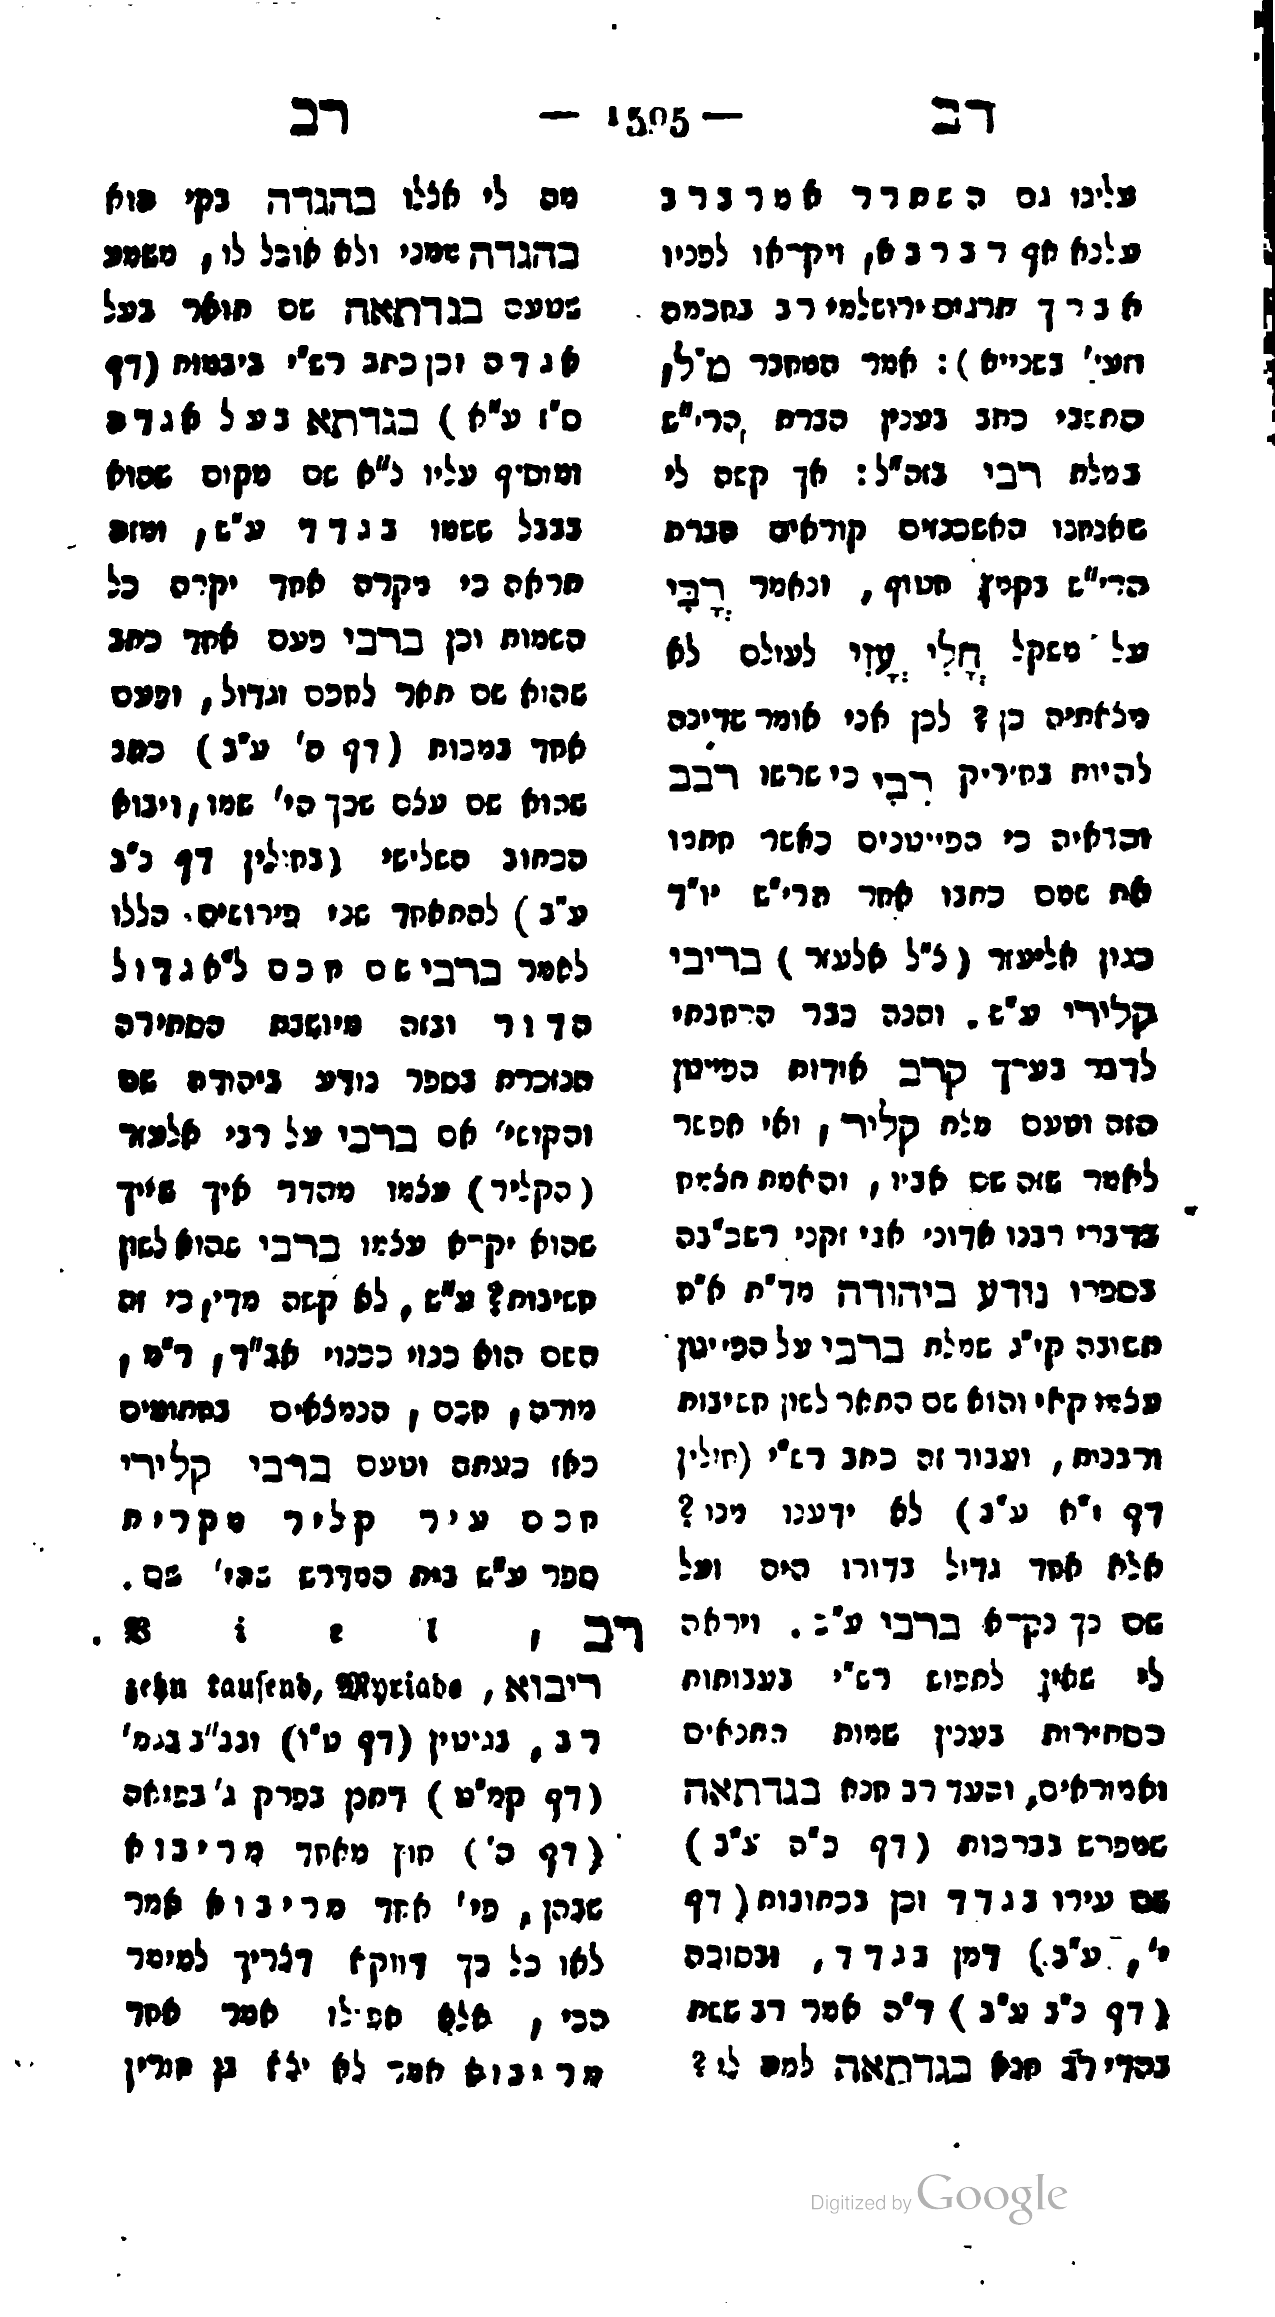 רב — 1505 — רב
עלינו גם השתרר אמר ברב
עלנא אף רברבא, ויקראו לפניו
אברך תרגום ירושלמי רב בחכמה
וזעי' בשנייא): אמר המחבר מ"ל,
התשבי כתב בענין הברת הרי"ש
במלת רבי בזה"ל: אך קשה לי
שאנחנו האשכנזים קוראים הברת
הרי"ש בקמץ חטוף, ונאמר רֳבִּי
על משקל חֳלִי עֳזִי לעולם לא
מלאתיה כן? לכן אני אומר שדינה
להיות בחיריק רִבִּי כי שרשו רבב
והראיה כי הפייטנים כאשר חתמו
את שמם כתבו אחר הרי"ש יו"ד
כגון אליעזר (צ"ל אלעזר) בריבי
קלירי ע"ש. והנה כבר הרחבתי
לדבר בערך קרב אודות הפייטן
הזה וטעם מלת קליר, ואי אפשר
לאמר שזה שם אביו, והאמת תצמח
בדברי רבנו אדוני אבי זקני רשכ"בה
בספרו נודע ביהודה מד"ת א"ח
תשובה קי"ג שמלת ברבי על הפייטן
עצמו קאי והוא שם התאר לשון חשיבות
ורבנות, ועבור זה כתב רש"י (חולין
דף י"א ע"ב) לא ידענו מנו?
אלא אחד גדול בדורו היה ועל
שם כך נקרא ברבי ע"כ. ויראה
לי שאין לתפוש רש"י בעבותות
הסתירות בענין שמות התנאים
ואמוראים, והעד רב חנא בגדתאה
שמפרש בברכות (דף נ"ה ע"ב)
שם עירו בגדד וכן בכתובות (דף
י', ע"ב) דמן בגדד, ובסוכה
(דף נ"ב ע"ב) ד"ה אמר רב ששת
בהדי רב חנא בגדתאה למה לו?
מה לי אצלו בהגדה בקי הוא
בהגדה שמני ולא אוכל לו, משמע
שטעם בגדתאה שם תואר בעל
אגדה וכן כתב רש"י ביבמות (דף
ס"ז ע"א) בגדתא בעל אגדה
ומוסיף עליו ל"א שם מקום שהוא
בבבל ששמו בגדד ע"ש, ומזה
תראה כי מקרה אחד יקרה כל
השמות וכן ברבי פעם אחד כתב
שהוא שם תאר לחכם וגדול, ופעם
אחד במכות (דף ה' ע"ב) כתב
שהוא שם עצם שכך הי' שמו, ויבוא
הכתוב השלישי (בחולין דף נ"ב
ע"ב) להתאחד שני פירושים הללו
לאמר ברבי שם חכם ל"א גדול
הדור ובזה מיושבת הסתירה
הנזכרת בספר נודע ביהודה שם
והקושי' אם ברבי על רבי אלעזר
(הקליר) עצמו מהדר איך שייך
שהוא יקרא עצמו ברבי שהוא לשון
חשיבות? ע"ש, לא קשה מדי, כי זה
השם הוא כנוי ככנוי אב"ד, ר"מ,
מורה, חכם, הנמצאים בחתומים
כאז כעתה וטעם ברבי קלירי
חכם עיר קליר מקרית
ספר ע"ש בית המדרש שהי' שם.
רב, Viel.
ריבוא, zehn tausend, Myriade
רב, בגיטין (דף ט"ו) ובב"ב בגמ'
(דף קמ"ט) דתנן בפרק ג' בפיאה
(דף ה') חוץ מאחד מריבוא
שבהן, פי' אחד מריבוא אמר
לאו כל כך דווקא דצריך למימר
הכי, אלא אפילו אמר אחד
מריבוא אמר לא יצא בן חורין
Digitized by Google